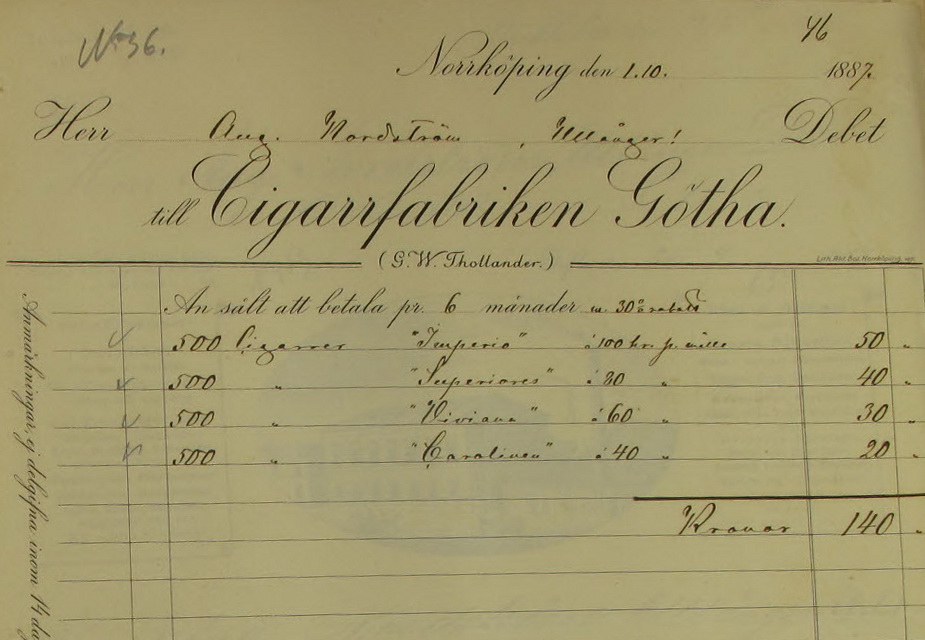 No 36.
46
Norrköping den 1.10. 1887.
Herr Aug. Nordström, Ullånger! Debet
till Cigarrfabriken Götha.
(G. W. Thollander.)
An sålt att betala pr. 6 månader m. 30% rabatt
500 Cigarrer "Imperio" á 100 kr. p. mille 50 "
500 " "Superiores" á 80 " 40 "
500 " "Viviana" á 60 " 30 "
500 " "Carolinen" á 40 " 20 "
Kronor 140 "
Anmärkningar, ej delgifna inom 14 da